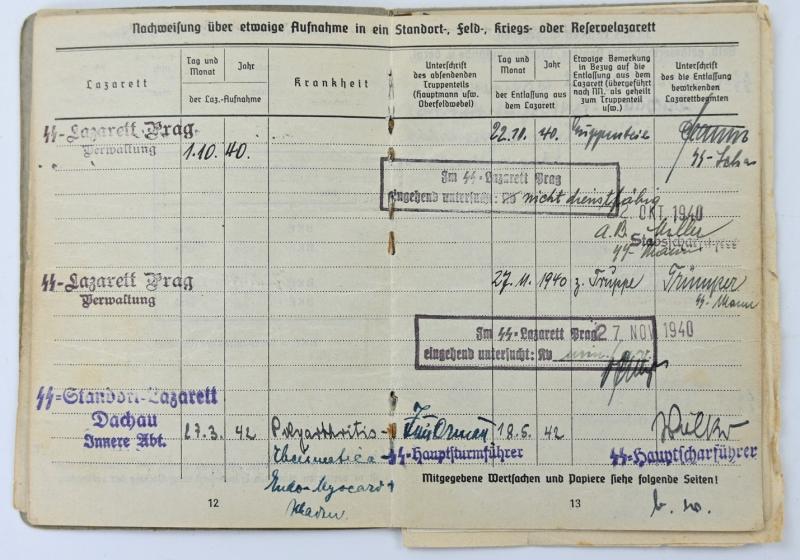 Nachweisung über etwaige Aufnahme in ein Standort-, Feld-, Kriegs- oder Reservelazarett
Lazarett
Tag und Monat
Jahr
der Laz.-Aufnahme
Krankheit
Unterschrift
des absendenden
Truppenteils
(Hauptmann usw.
Oberfeldwebel)
Tag und Monat
Jahr
der Entlassung aus
dem Lazarett
Etwaige Bemerkung
in Bezug auf die
Entlassung aus dem
Lazarett (übergeführt
nach NN, als geheilt
zum Truppenteil
usw.)
Unterschrift
des die Entlassung
bewirkenden
Lazarettbeamten
SS-Lazarett Prag
Verwaltung
1.10. 40.
22.10. 40.
Im SS-Lazarett Prag
eingehend untersucht: Kv nicht dienstfähig
2. OKT. 1940
a.B. Miller
Stabsscharführer
SS-Mann
SS-Lazarett Prag
Verwaltung
27.11. 1940 z. Truppe
SS-Mann
Im SS-Lazarett Prag
27. NOV. 1940
eingehend untersucht: Kv
SS-Standort-Lazarett
Dachau
Innere Abt.
27.3. 42
Polyarthritis
rheumatica
Endo-Myocard
18.6. 42
SS-Hauptsturmführer
SS-Hauptscharführer
Mitgegebene Wertsachen und Papiere siehe folgende Seiten!
12
13
b. w.